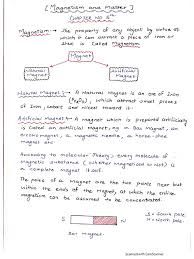 [Magnetism and Matter]
CHAPTER NO 5th
Magnetism → The property of any object by virtue of
which it can attract a piece of iron or
steel is called Magnetism
Magnet
Natural
Magnet
Artificial
Magnet
Natural Magnet :- A Natural magnet is an ore of Iron
(Fe3O4), which attract small pieces
of Iron, cobalt and nickel towards it.
Artificial Magnet :- A magnet which is prepared artificially
is called an artificial magnet, eg → Bar magnet, an
electromagnet, a magnetic needle, a horse-shoe
magnet etc.
According to molecular Theory, every molecule of
magnetic substance (whether it is magnetised or
not) is a complete magnet itself.
The poles of a magnet are the two points near but
within the ends of the magnet, at which the entire
magnetism can be assumed to be concentrated.
S
N
S = South pole
N = North pole
Scanned with CamScanner